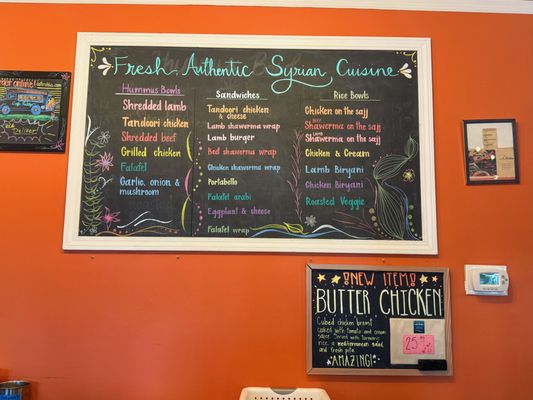 Fresh, Authentic Syrian Cuisine
Hummus Bowls
Shredded lamb
Tandoori chicken
Shredded beef
Grilled chicken
Falafel
Garlic, onion &
mushroom
Sandwiches
Tandoori chicken
& cheese
Lamb shawerma wrap
Lamb burger
Beef shawerma wrap
Chicken shawerma wrap
Portabello
Falafel arabi
Eggplant & cheese
Falafel wrap
Rice Bowls
Chicken on the sajj
BEEF
Shawerma on the sajj
LAMB
Shawarma on the sajj
Chicken & Cream
Lamb Biryani
Chicken Biryani
Falafel
Roasted Veggie
order online!
we Deliver
!NEW ITEM!
BUTTER CHICKEN
Cubed chicken breast
cooked with tomato and cream
sauce. Served with turmeric
rice, a mediterranean salad,
and fresh pita
AMAZING!
25